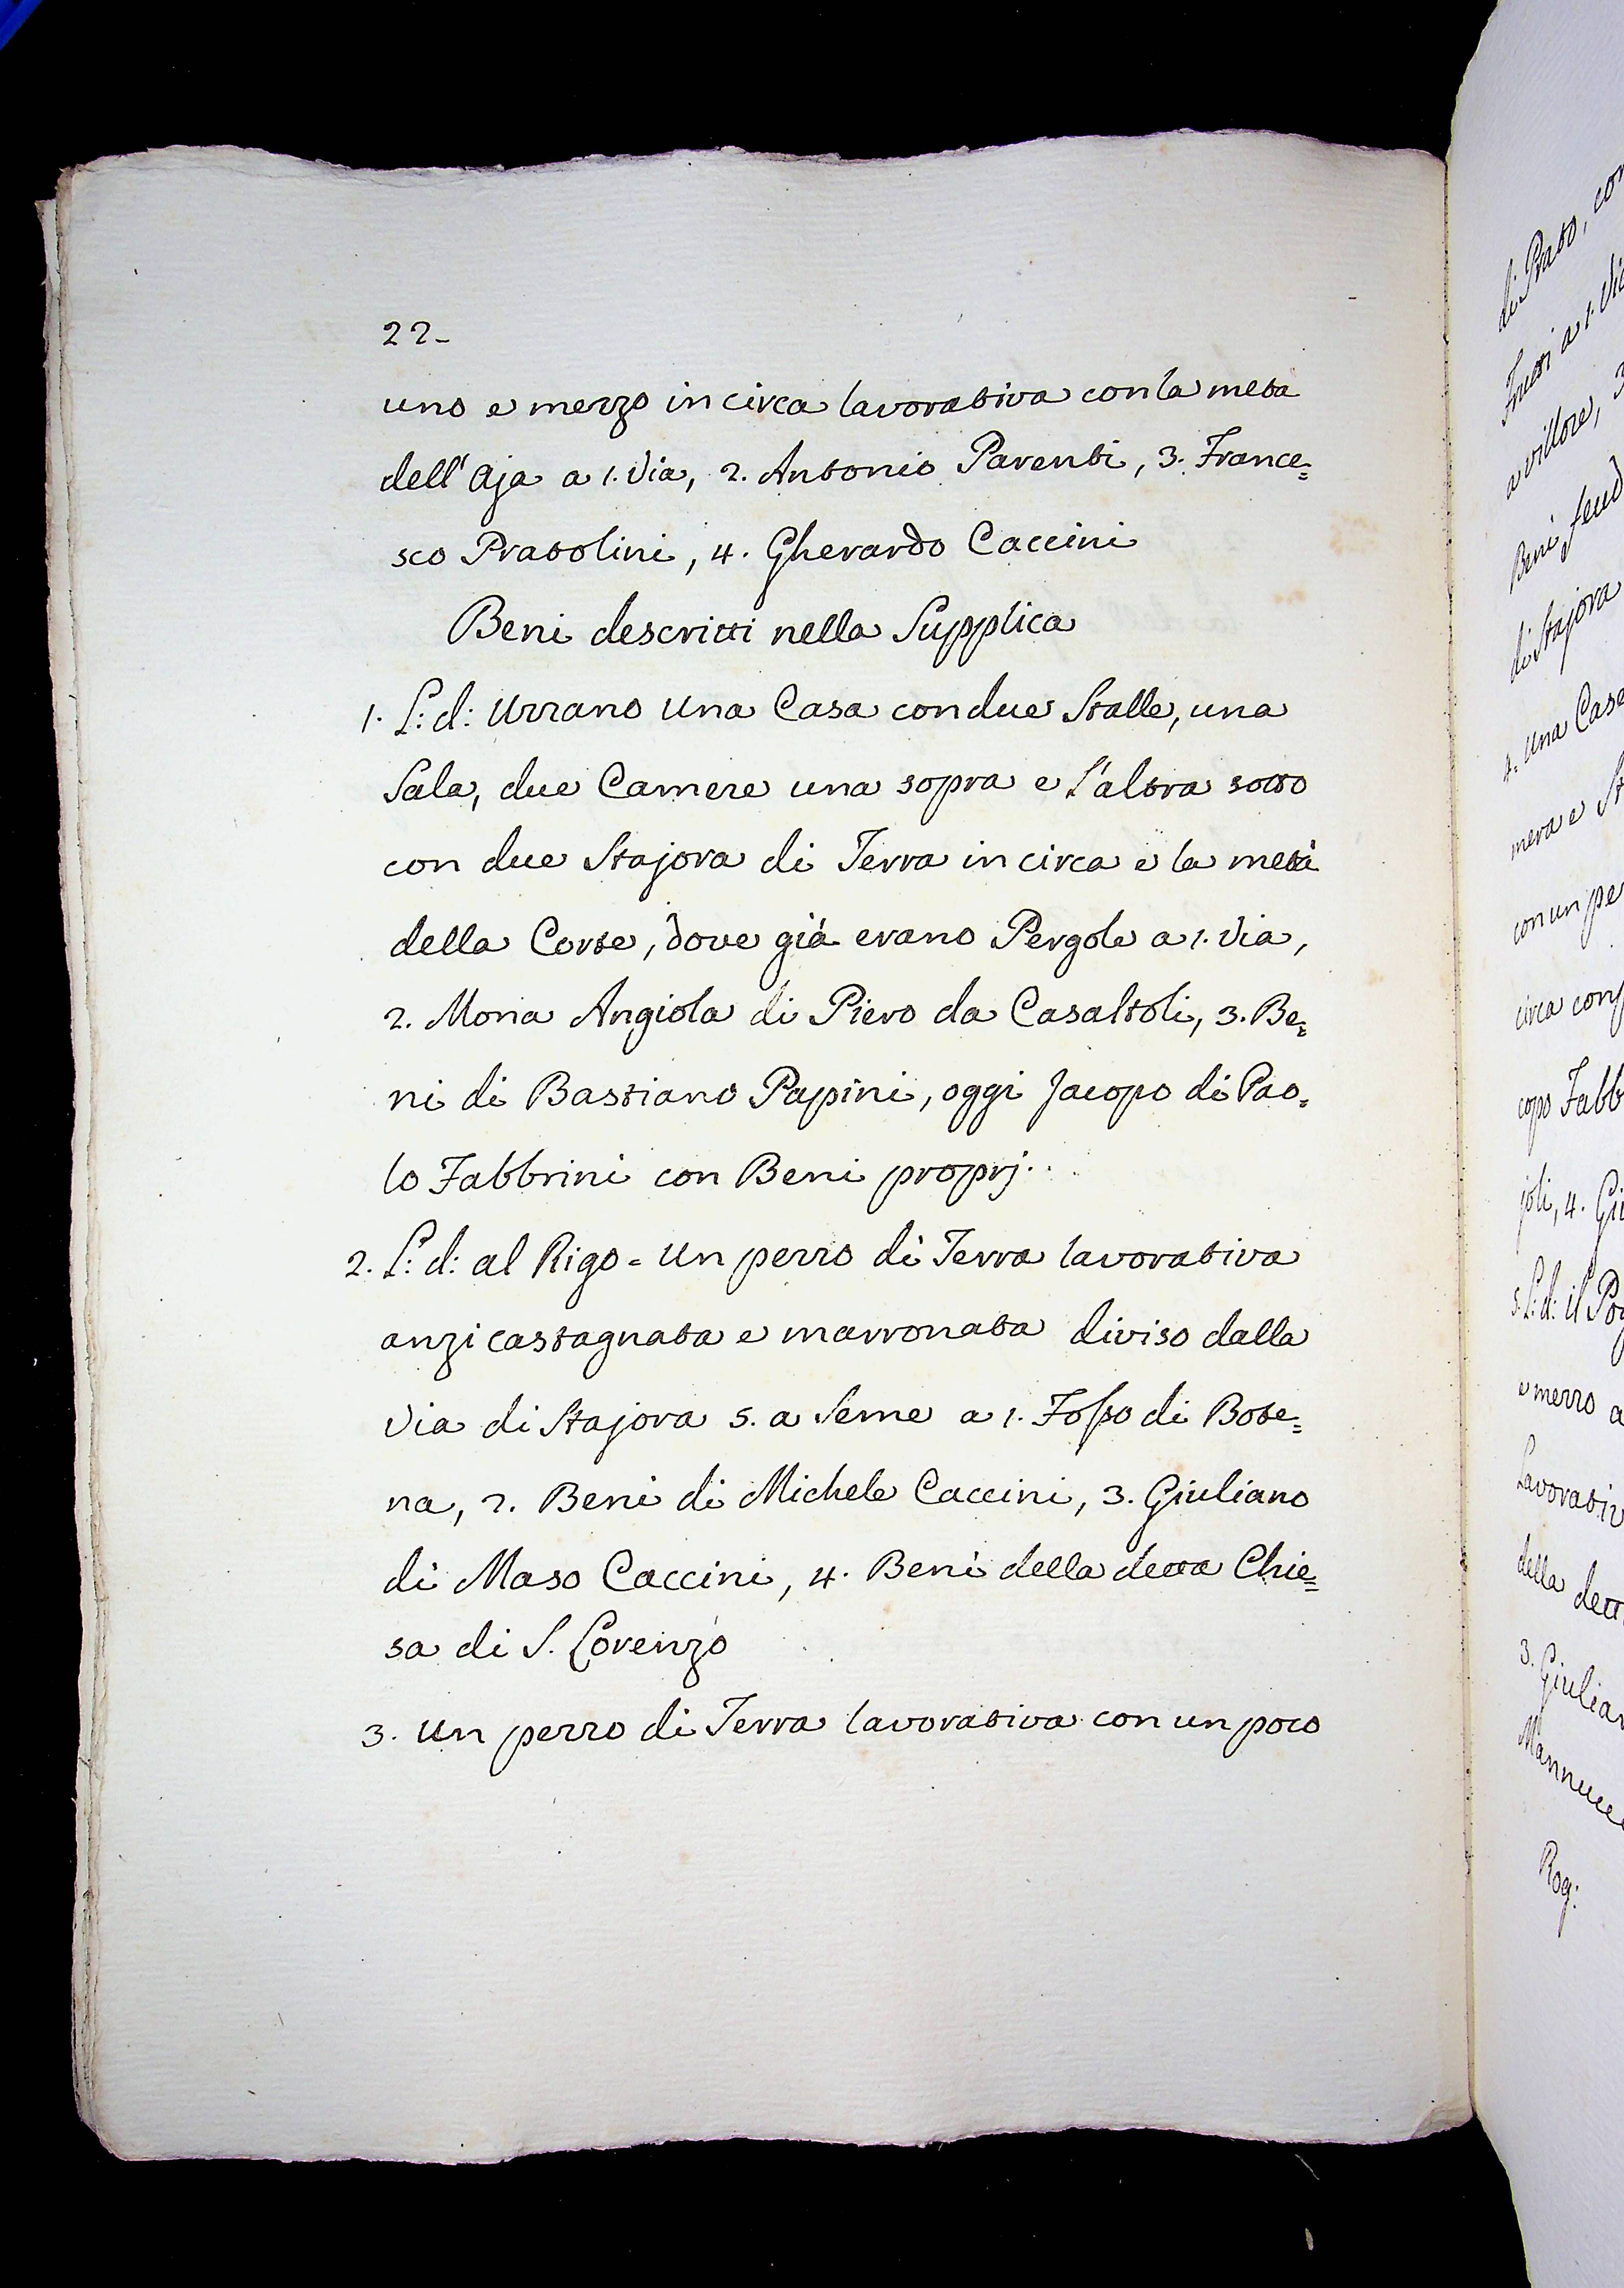 22-
uno e mezzo in circa lavorativa con la metà
dell'Aja a 1. Via, 2. Antonio Parenti, 3. France=
sco Pratolini, 4. Gherardo Caccini
Beni descritti nella Supplica
1. L: d: Uzzano Una Casa con due Stalle, una
Sala, due Camere una sopra e l'altra sotto
con due Stajora di Terra in circa e la metà
della Corte, dove già erano Pergole a 1. Via,
2. Mona Angiola di Piero da Casaltoli, 3. Be=
ni di Bastiano Papini, oggi Jacopo di Pao=
lo Fabbrini con Beni proprj.
2. L: d: al Rigo = Un pezzo di Terra lavorativa
anzi castagnata e marronata diviso dalla
Via di Stajora 5. a Seme a 1. Fosso di Bote=
na, 2. Beni di Michele Caccini, 3. Giuliano
di Maso Caccini, 4. Beni della detta Chie=
sa di S. Lorenzo
3. Un pezzo di Terra lavorativa con un poco
di Prato,
a 1.
a villore,
Beni
di Stajora
4. Una
mera e
con un
circa
copo
joli, 4.
5. L: d: il
e mezzo a
della
3.
Rog: